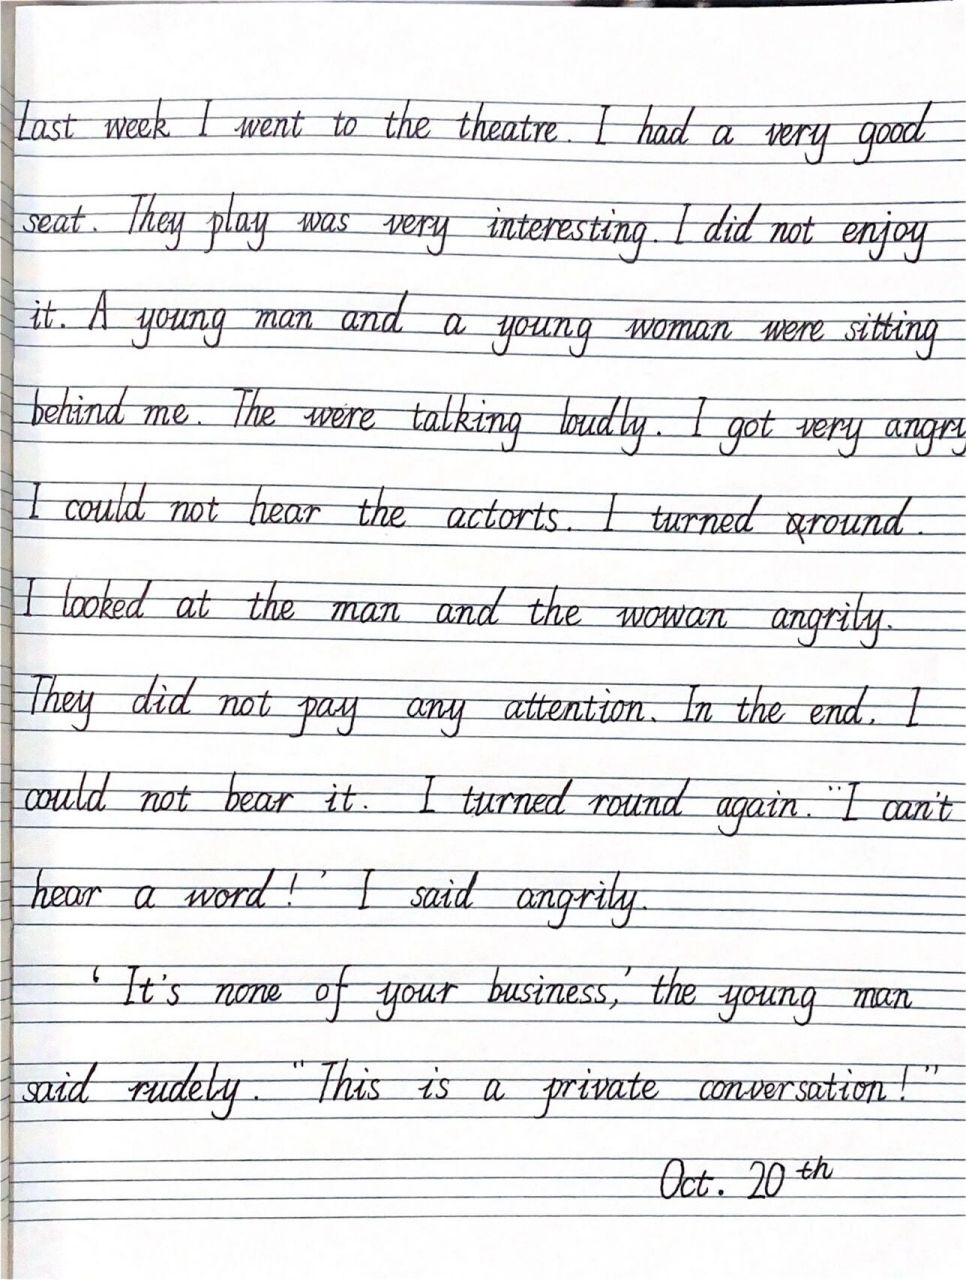 Last week I went to the theatre. I had a very good
seat. They play was very interesting. I did not enjoy
it. A young man and a young woman were sitting
behind me. The were talking loudly. I got very angry
I could not hear the actorts. I turned around.
I looked at the man and the wowan angrily.
They did not pay any attention. In the end. I
could not bear it. I turned round again. "I can't
hear a word!' I said angrily.
'It's none of your business,' the young man
said rudely. "This is a private conversation!"
Oct. 20th